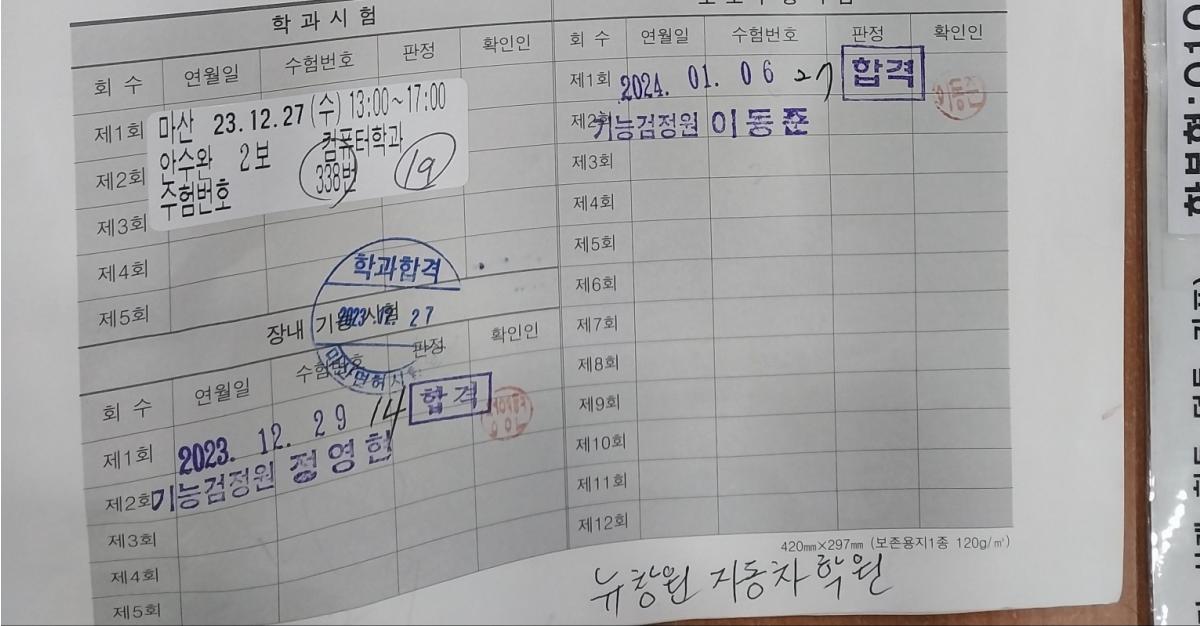 학 과 시 험
회 수 연월일 수험번호 판정 확인인
제1회
마산 23.12.27 (수) 13:00~17:00
안수완 2보 컴퓨터학과
수험번호 338번 19
제2회
제3회
제4회
제5회
학과합격
27
장내 기능시험
회 수 연월일 수험번호 판정 확인인
제1회 2023. 12. 29 14 합격
제2회 기능검정원 정영헌
제3회
제4회
제5회
회 수 연월일 수험번호 판정 확인인
제1회 2024. 01. 06 27 합격
제2회 기능검정원 이동준
제3회
제4회
제5회
제6회
제7회
제8회
제9회
제10회
제11회
제12회
420㎜×297㎜ (보존용지1종 120g/㎡)
뉴창원 자동차 학원